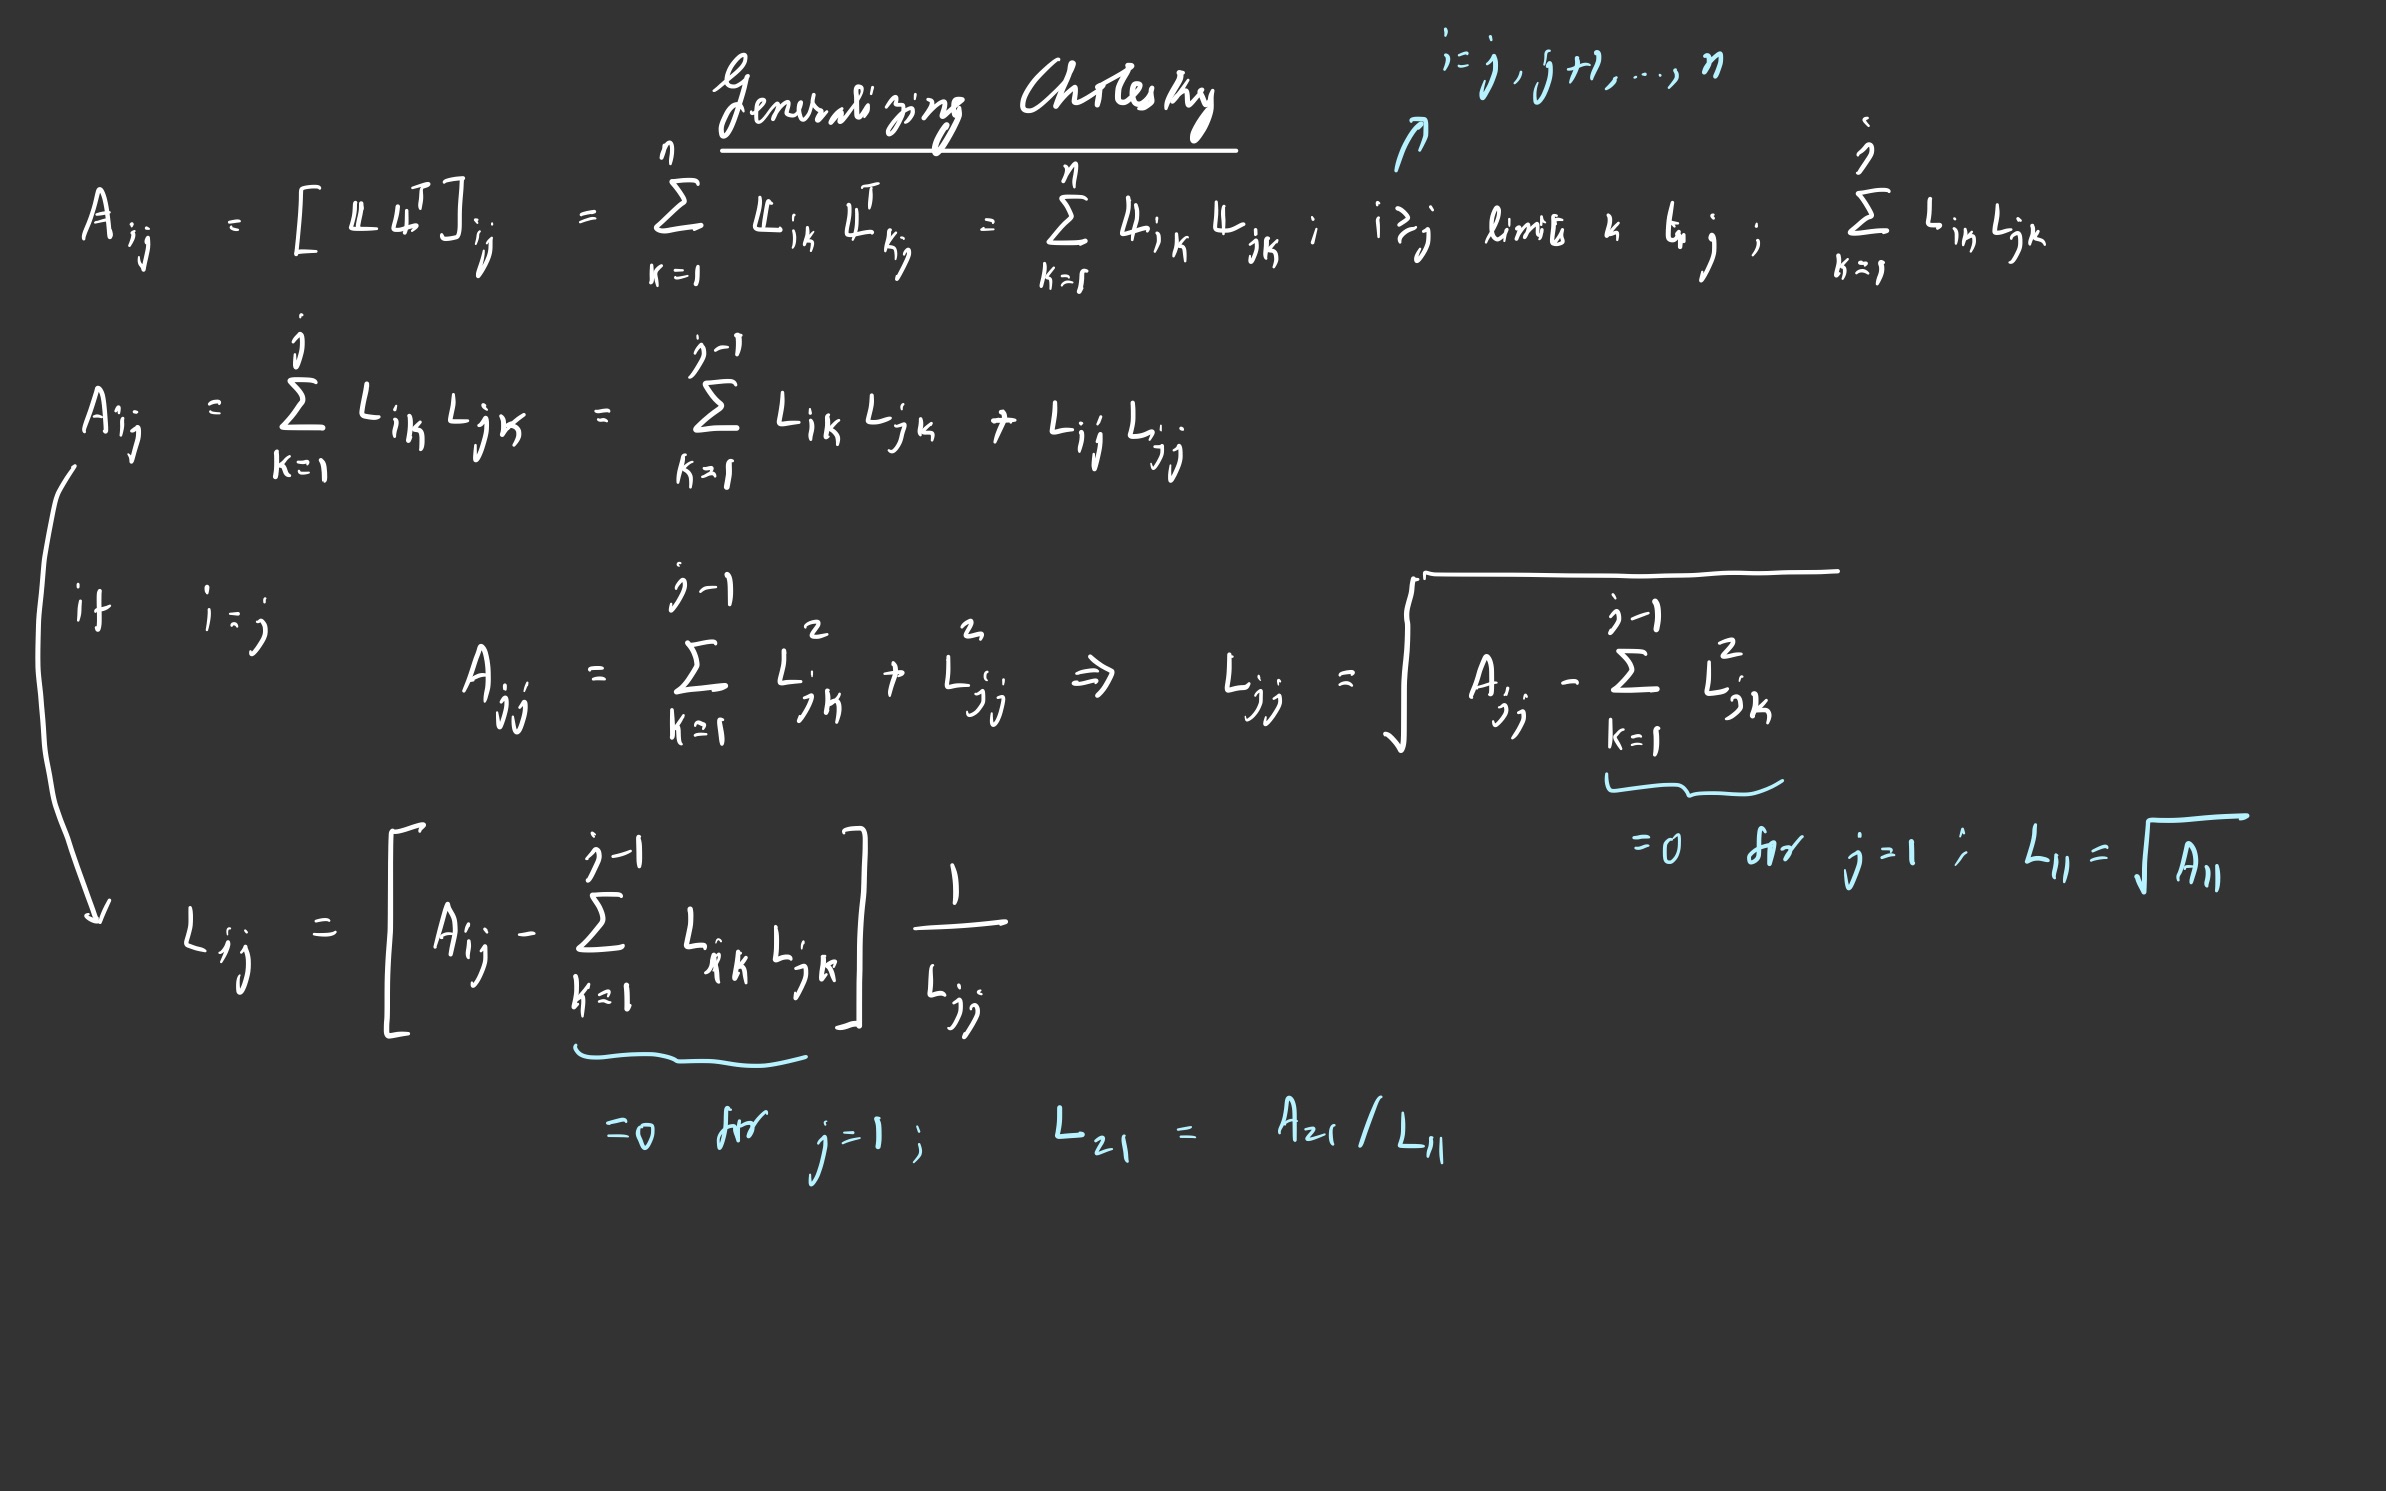 Generalizing Cholesky
i = j, j+1, ..., n
A_{ij} = [L L^T]_{ij} = \sum_{k=1}^{n} L_{ik} L^T_{kj} = \sum_{k=1}^{n} L_{ik} L_{jk} , i ≥ j limits k to j ; \sum_{k=1}^{j} L_{ik} L_{jk}
A_{ij} = \sum_{k=1}^{j} L_{ik} L_{jk} = \sum_{k=1}^{j-1} L_{ik} L_{jk} + L_{ij} L_{jj}
if i = j
A_{jj} = \sum_{k=1}^{j-1} L_{jk}^2 + L_{jj}^2 ⇒ L_{jj} = \sqrt{A_{jj} - \sum_{k=1}^{j-1} L_{jk}^2}
=0 for j=1 ; L_{11} = \sqrt{A_{11}}
L_{ij} = [A_{ij} - \sum_{k=1}^{j-1} L_{ik} L_{jk}] \frac{1}{L_{jj}}
=0 for j=1 ; L_{21} = A_{21} / L_{11}